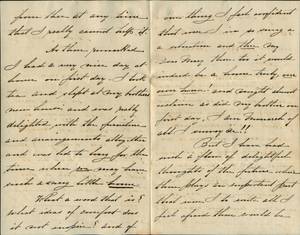 from them at any time
that I really cannot help it.
As then remarked
I had a very nice day at
home on first day. I took
tea and slept at my brothers
new house and was really
delighted with the furniture
and arrangements altogether
and was led to long for the
time when we may have
such a cosy little home.
What a word that is!
what ideas of comfort does
it not inspire! and of
one thing I feel confident
that were I in so snug a
a situation and thee
were may then be it would
indeed be a home truly, our
own home! and caught about
on
first day, I am monarch of
all I survey &c!!
But I have had
such a flow of delightful
thoughts of the future, where
thee plays so important part
that were I to write all I
feel afraid there would be